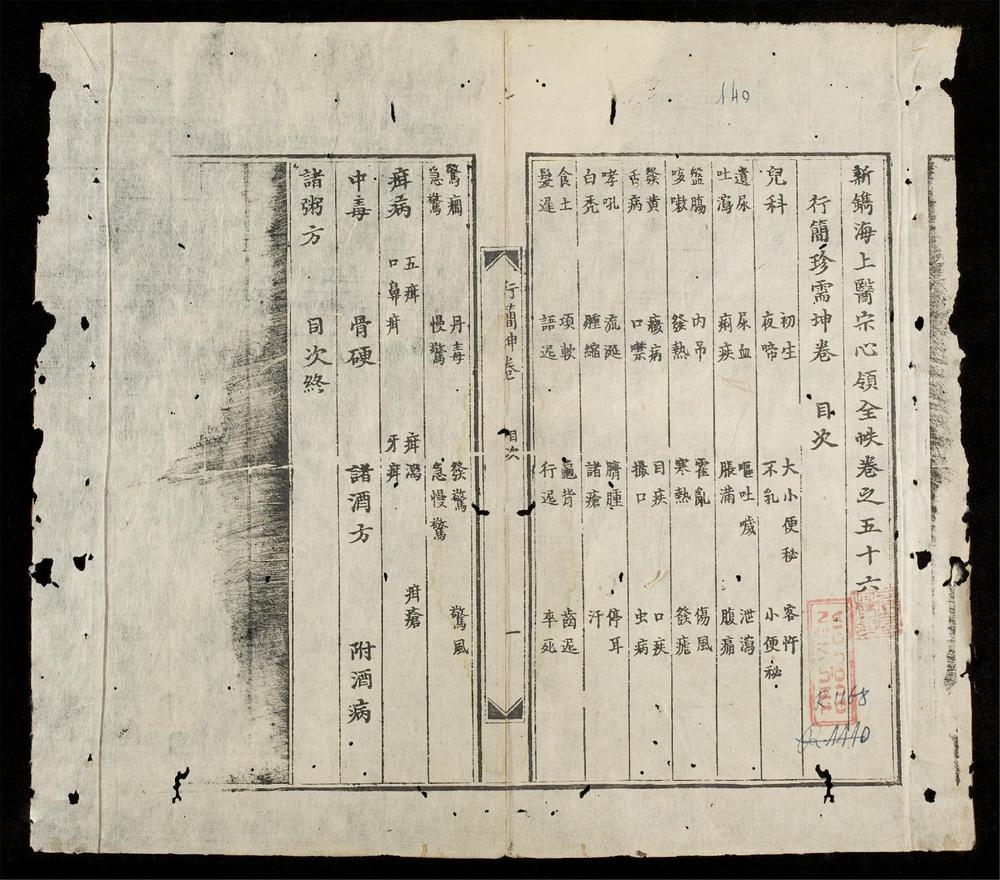 新鐫海上醫宗心領全帙卷之五十六
行簡珍需坤卷 目次
兒科 初生 夜啼 大小便秘 不乳 客忤 小便秘
遺尿 吐瀉 尿血 痢疾 嘔吐噦 脹滿 泄瀉 腹痛
盤腸 咳嗽 內吊 發熱 霍亂 寒熱 傷風 發瘧
發黃 舌病 痰病 口噤 目疾 撮口 口疾 虫病
哮吼 白禿 流涎 腫縮 臍腫 諸瘡 停耳 汗
食土 髮遲 項軟 語迟 龜背 行迟 齒迟 卒死
行簡坤卷 目次 一
驚癇 急驚 丹毒 慢驚 發驚 急慢驚 驚風
疳病 五疳 口鼻疳 疳瀉 牙疳 疳瘡
中毒 骨硬 諸酒方 附酒病
諸粥方 目次終
140
R.1168
1110